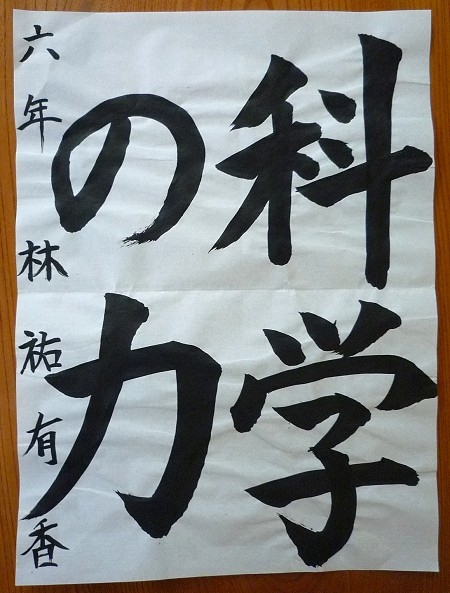 科学
の力
六年 林祐有香